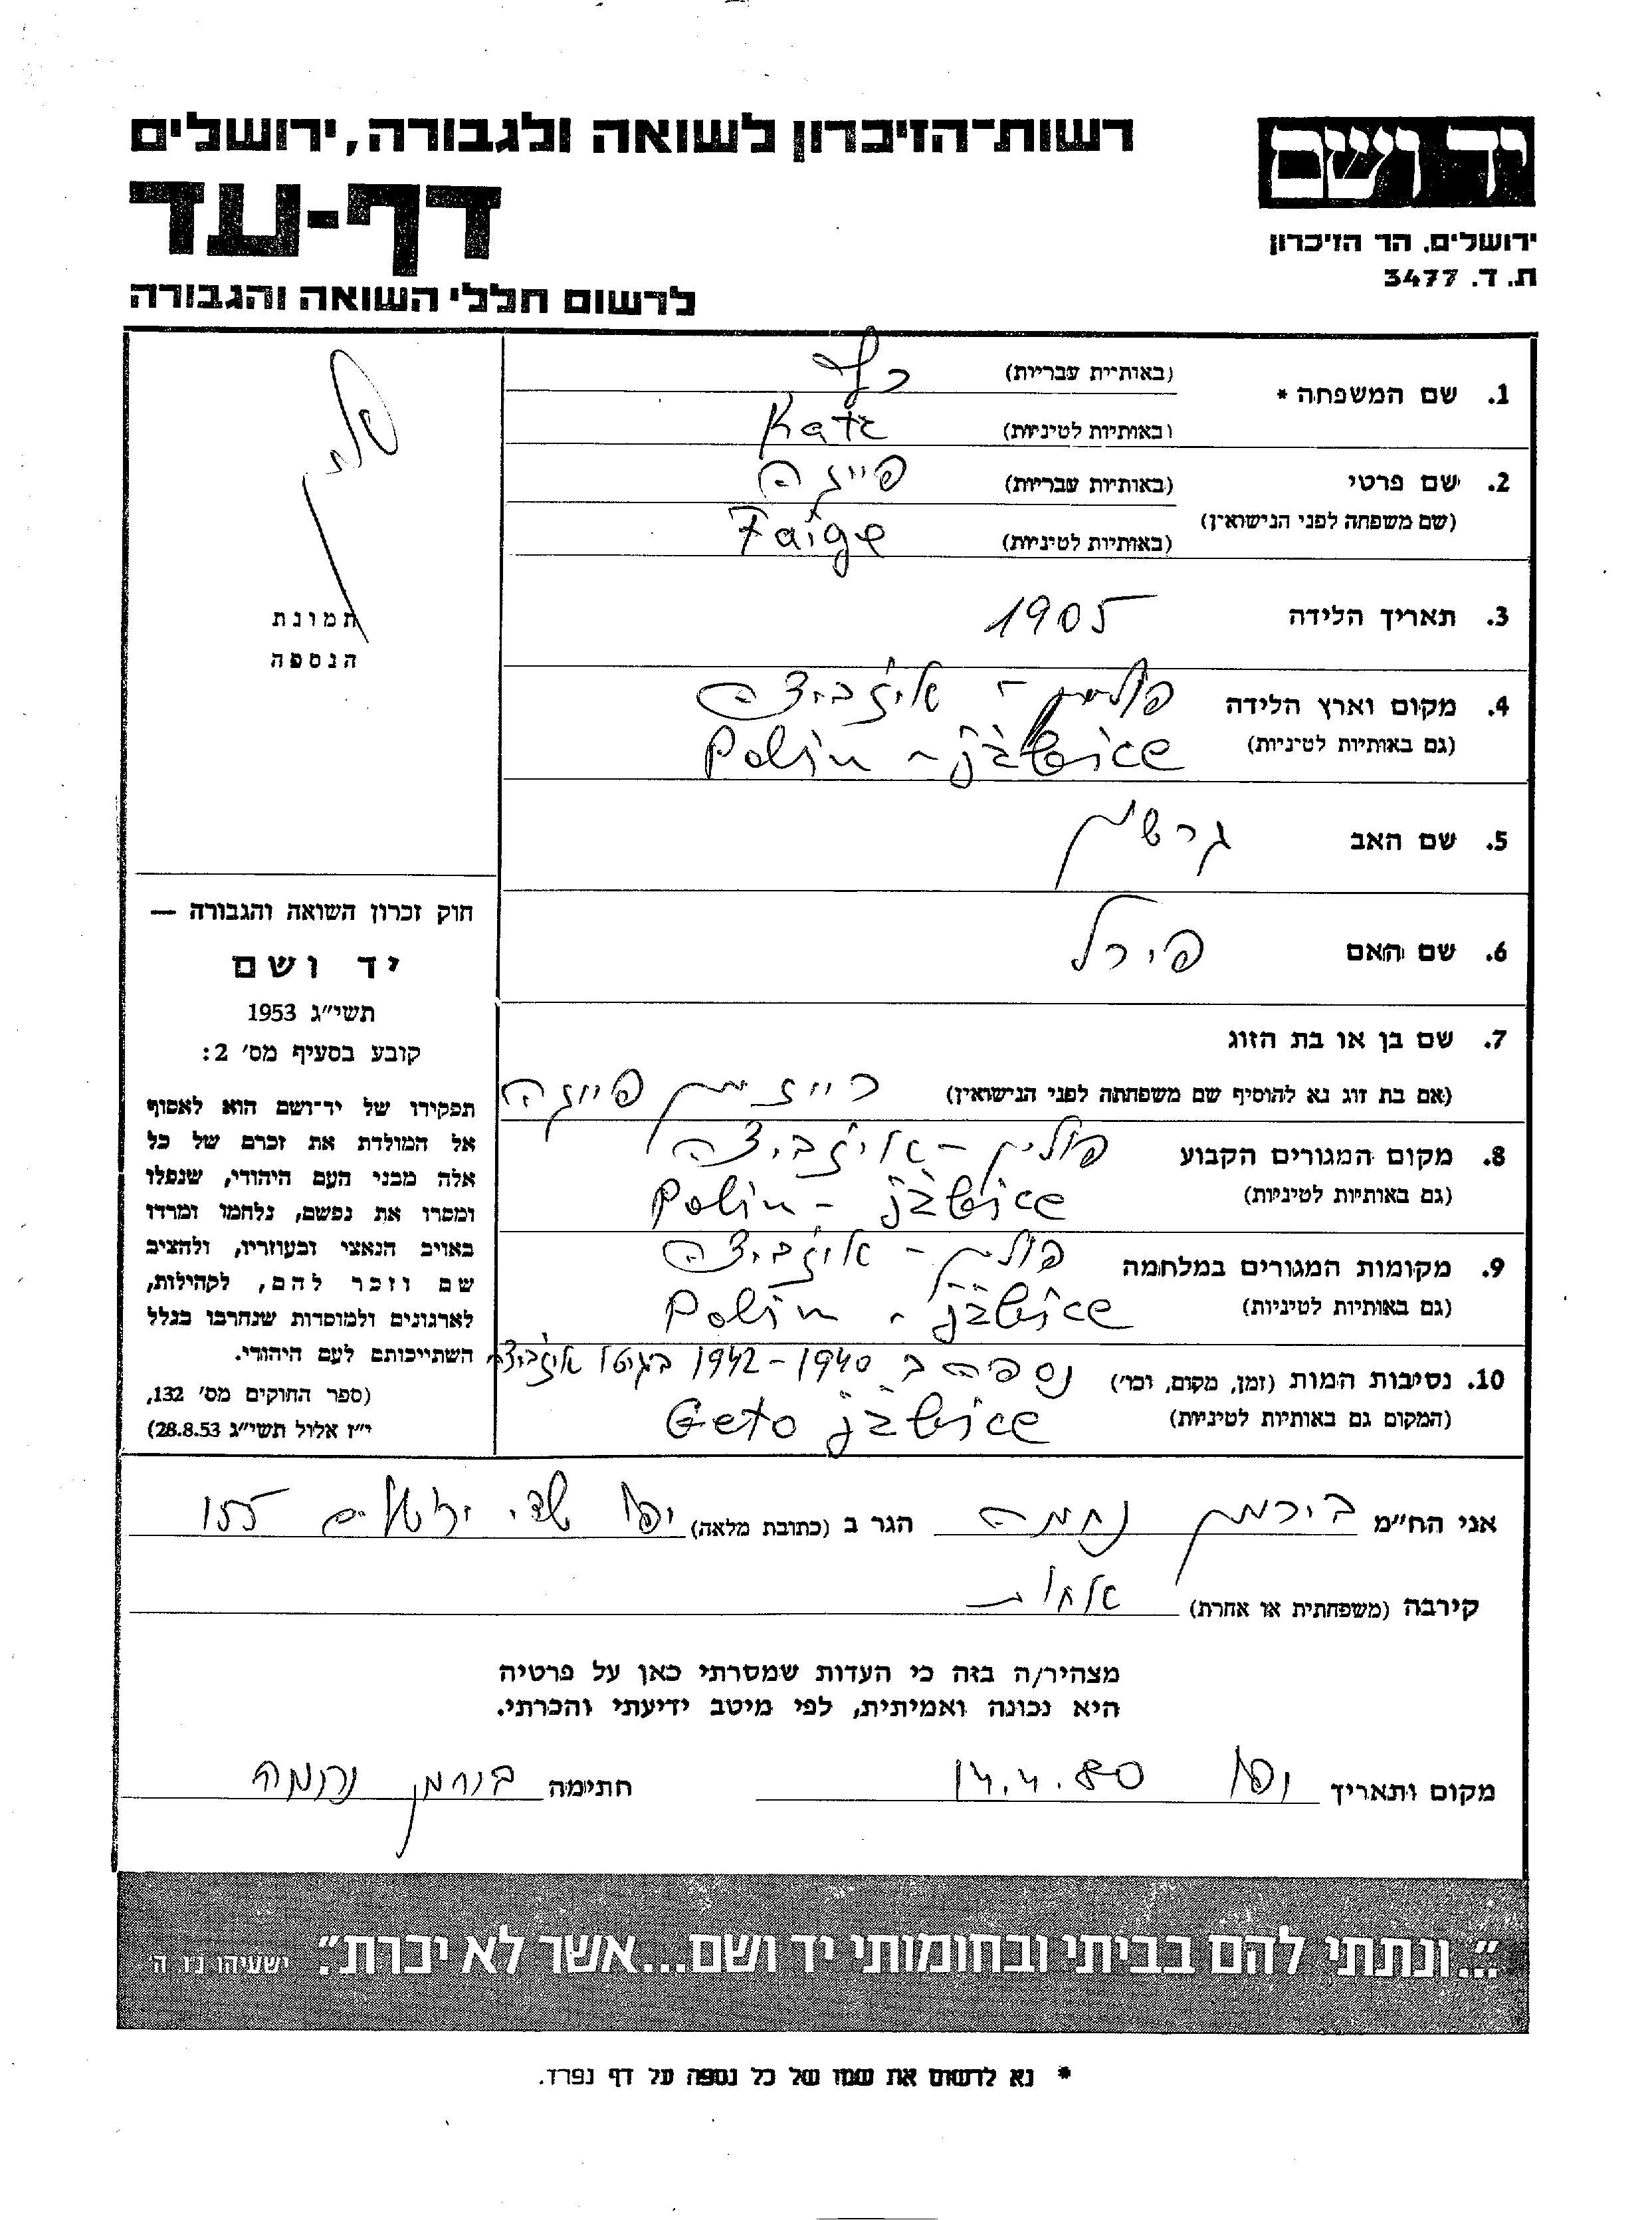 רשות־הזיכרון לשואה ולגבורה, ירושלים
יד ושם
דף-עד
ירושלים, הר הזיכרון
ת. ד. 3477
לרשום חללי השואה והגבורה
1. שם המשפחה * (באותיות עבריות) כץ
(באותיות לטיניות) Katz
2. שם פרטי (באותיות עבריות) פייגה
(שם משפחה לפני הנישואין) (באותיות לטיניות) Faige
3. תאריך הלידה 1905
4. מקום וארץ הלידה פולין - איז'ביצה
(גם באותיות לטיניות) Polin - jzbice
5. שם האב גרשון
6. שם האם פירל
7. שם בן או בת הזוג
(אם בת זוג נא להוסיף שם משפחתה לפני הנישואין) פייגה
8. מקום המגורים הקבוע פולין - איז'ביצה
(גם באותיות לטיניות) Polin - jzbice
9. מקומות המגורים במלחמה פולין - איז'ביצה
(גם באותיות לטיניות) Polin - jzbice
10. נסיבות המות (זמן, מקום, וכו') נספתה ב 1940-1942 בגיטו איז'ביצה
(המקום גם באותיות לטיניות) Geto jzbice
תמונת
הנספה
חוק זכרון השואה והגבורה —
יד ושם
תשי״ג 1953
קובע בסעיף מס׳ 2:
תפקידו של יד־ושם הוא לאסוף
אל המולדת את זכרם של כל
אלה מבני העם היהודי, שנפלו
ומסרו את נפשם, נלחמו ומרדו
באויב הנאצי ובעוזריו, ולהציב
שם וזכר להם, לקהילות,
לארגונים ולמוסדות שנחרבו בגלל
השתייכותם לעם היהודי.
(ספר החוקים מס׳ 132,
י״ז אלול תשי״ג 28.8.53)
אני הח״מ בירמן נחמה הגר ב (כתובת מלאה) יפו שד' ירושלים 155
קירבה (משפחתית או אחרת) אחות
מצהיר/ה בזה כי העדות שמסרתי כאן על פרטיה
היא נכונה ואמיתית, לפי מיטב ידיעתי והכרתי.
מקום ותאריך יפו 14.4.80 חתימה בירמן נחמה
״...ונתתי להם בביתי ובחומותי יד ושם...אשר לא יכרת״. ישעיהו נו, ה
* נא לרשום את שמו של כל נספה על דף נפרד.